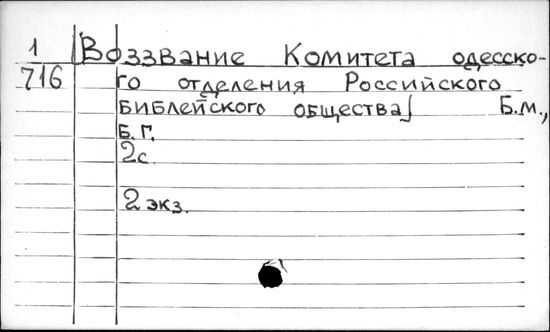 1 Воззвание Комитета одесско-
716 го отделения Российского
библейского общества] Б.м.,
Б.г.
2с.
2 экз.